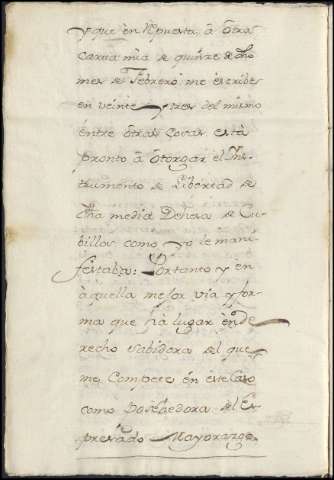 y que en Rpuesta, â Otra
Carta mia de quinze de dho
mes de Febrero me escribes
en veinte y tres del mismo
entre otras cosas està
prompto â Otorgar el Ins-
trumento de Libertad de
dha media Dehesa de Cu-
billos como yo le mani
festaba: Portanto y en
aquella mejor via y for-
ma que hà lugar en de
recho sabidora del que
me Compete en este Caso
como Poseedora del Ex-
presado Mayorazgo